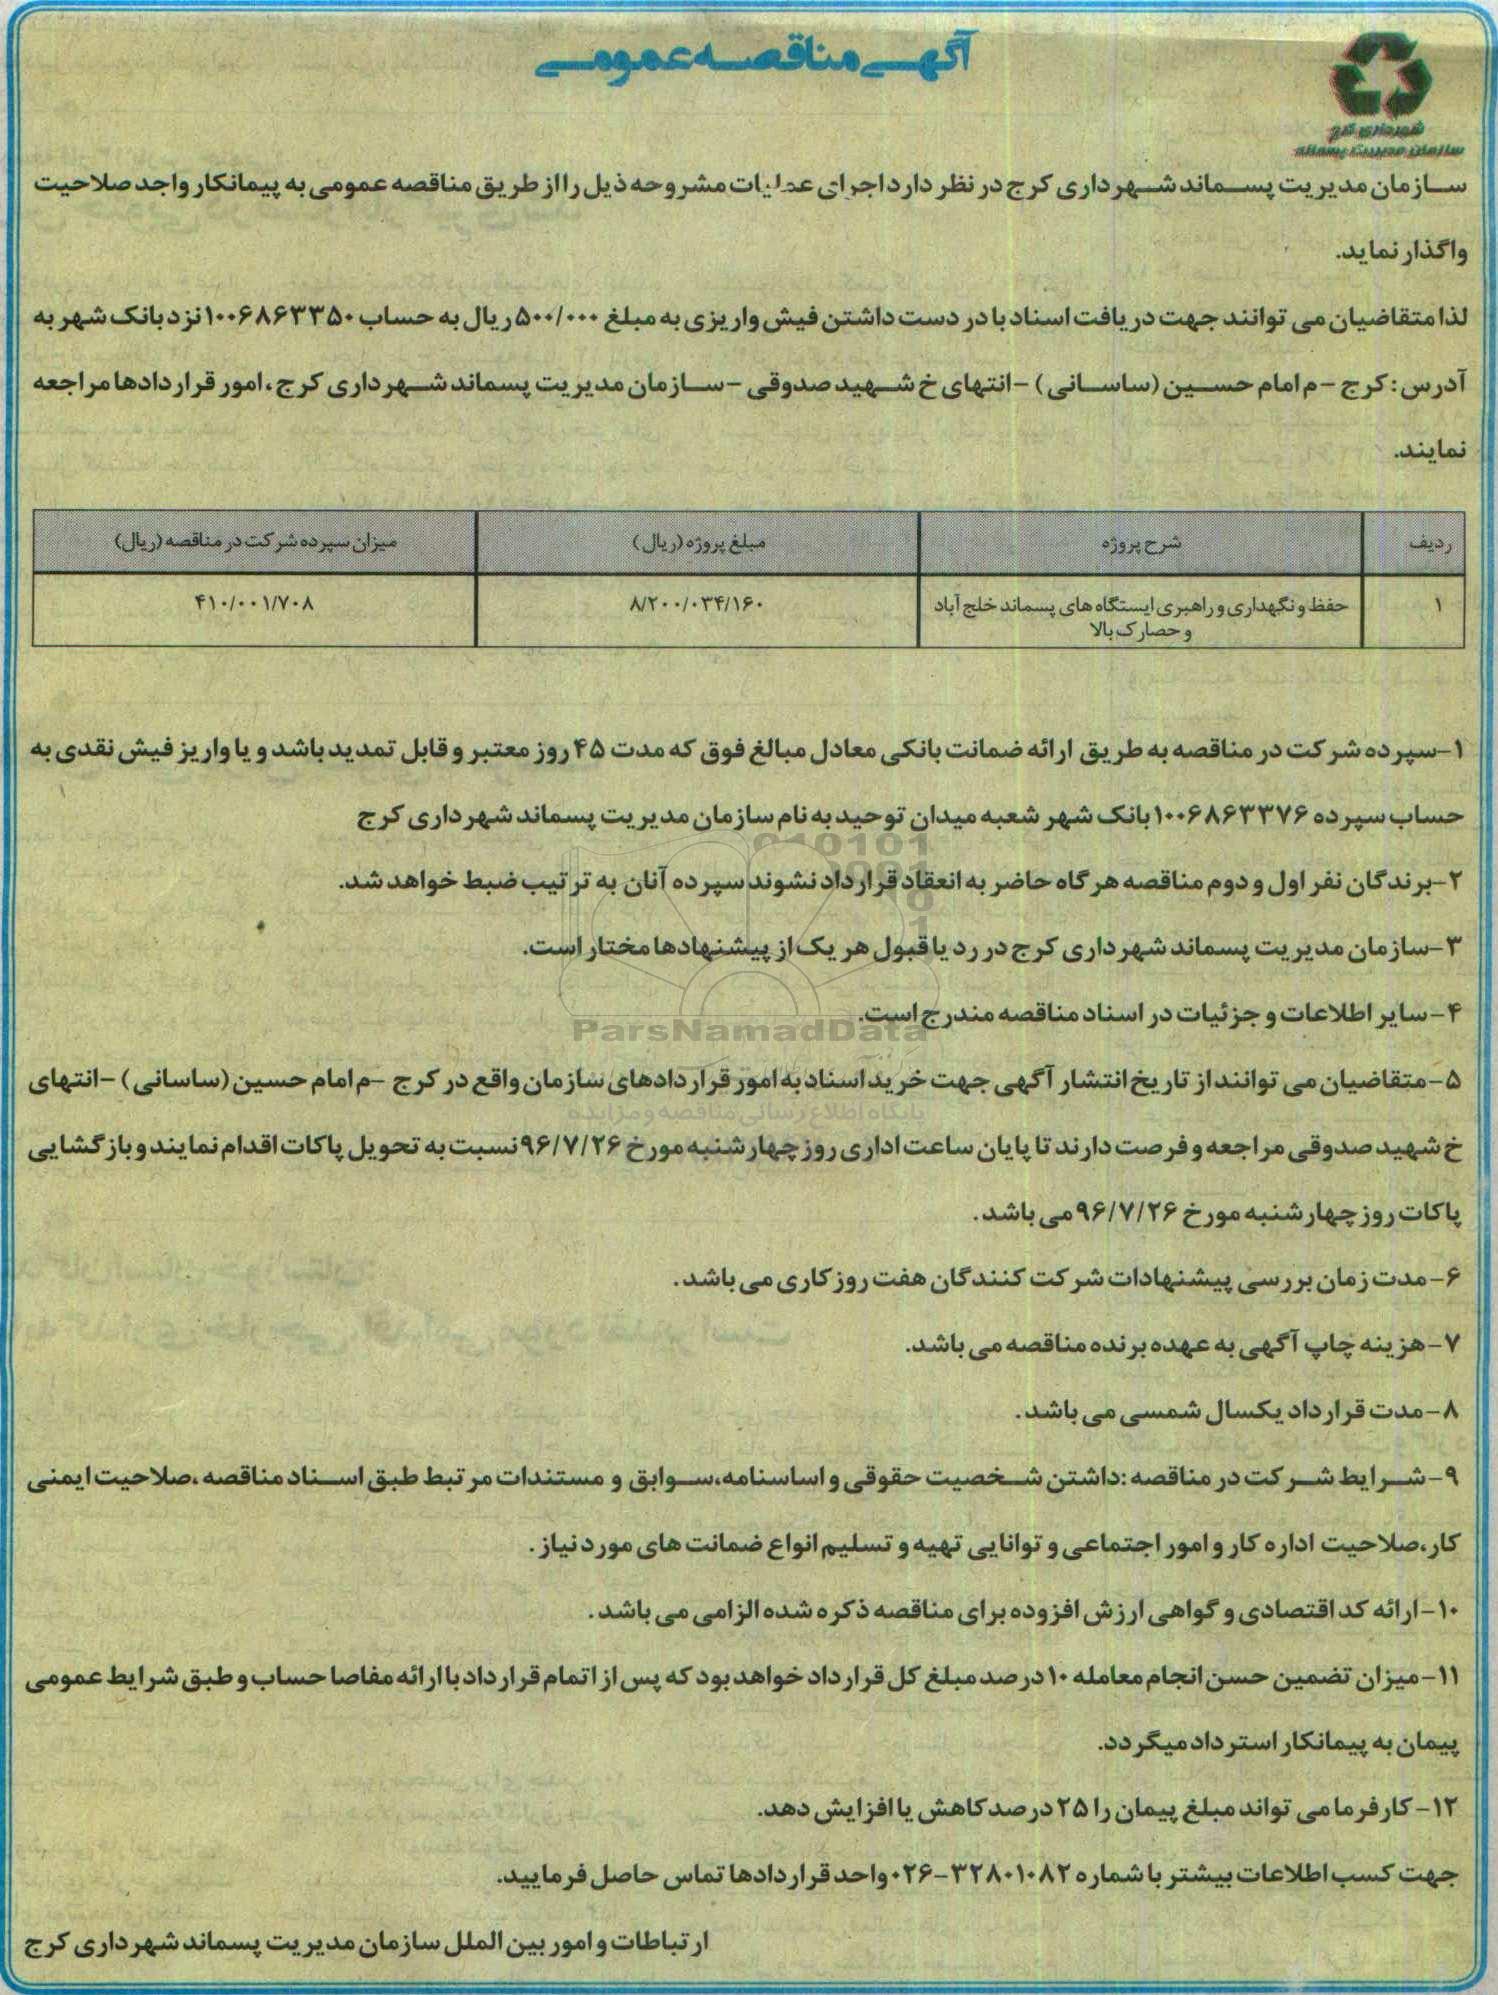 آگهی مناقصه عمومی
شهرداری کرج
سازمان مدیریت پسماند
سازمان مدیریت پسماند شهرداری کرج در نظر دارد اجرای عملیات مشروحه ذیل را از طریق مناقصه عمومی به پیمانکار واجد صلاحیت
واگذار نماید.
لذا متقاضیان می توانند جهت دریافت اسناد با در دست داشتن فیش واریزی به مبلغ ۵۰۰/۰۰۰ ریال به حساب ۱۰۰۶۸۶۳۳۵۰ نزد بانک شهر به
آدرس: کرج - م امام حسین (ساسانی) - انتهای خ شهید صدوقی - سازمان مدیریت پسماند شهرداری کرج، امور قراردادها مراجعه
نمایند.
ردیف شرح پروژه مبلغ پروژه (ریال) میزان سپرده شرکت در مناقصه (ریال)
۱ حفظ و نگهداری و راهبری ایستگاه های پسماند خلج آباد ۸/۲۰۰/۰۳۴/۱۶۰ ۴۱۰/۰۰۱/۷۰۸
و حصارک بالا
۱- سپرده شرکت در مناقصه به طریق ارائه ضمانت بانکی معادل مبالغ فوق که مدت ۴۵ روز معتبر و قابل تمدید باشد و یا واریز فیش نقدی به
حساب سپرده ۱۰۰۶۸۶۳۳۷۶ بانک شهر شعبه میدان توحید به نام سازمان مدیریت پسماند شهرداری کرج
۲- برندگان نفر اول و دوم مناقصه هر گاه حاضر به انعقاد قرارداد نشوند سپرده آنان به ترتیب ضبط خواهد شد.
۳- سازمان مدیریت پسماند شهرداری کرج در رد یا قبول هر یک از پیشنهادها مختار است.
۴- سایر اطلاعات و جزئیات در اسناد مناقصه مندرج است.
ParsNamadData
۵- متقاضیان می توانند از تاریخ انتشار آگهی جهت خرید اسناد به امور قراردادهای سازمان واقع در کرج - م امام حسین (ساسانی) - انتهای
پایگاه اطلاع رسانی مناقصه و مزایده
خ شهید صدوقی مراجعه و فرصت دارند تا پایان ساعت اداری روز چهارشنبه مورخ ۹۶/۷/۲۶ نسبت به تحویل پاکات اقدام نمایند و بازگشایی
پاکات روز چهارشنبه مورخ ۹۶/۷/۲۶ می باشد.
۶- مدت زمان بررسی پیشنهادات شرکت کنندگان هفت روز کاری می باشد.
۷- هزینه چاپ آگهی به عهده برنده مناقصه می باشد.
۸- مدت قرارداد یکسال شمسی می باشد.
۹- شرایط شرکت در مناقصه: داشتن شخصیت حقوقی و اساسنامه، سوابق و مستندات مرتبط طبق اسناد مناقصه، صلاحیت ایمنی
کار، صلاحیت اداره کار و امور اجتماعی و توانایی تهیه و تسلیم انواع ضمانت های مورد نیاز.
۱۰- ارائه کد اقتصادی و گواهی ارزش افزوده برای مناقصه ذکر شده الزامی می باشد.
۱۱- میزان تضمین حسن انجام معامله ۱۰ درصد مبلغ کل قرارداد خواهد بود که پس از اتمام قرارداد با ارائه مفاصا حساب و طبق شرایط عمومی
پیمان به پیمانکار استرداد میگردد.
۱۲- کارفرما می تواند مبلغ پیمان را ۲۵ درصد کاهش یا افزایش دهد.
جهت کسب اطلاعات بیشتر با شماره ۳۲۸۰۱۰۸۲-۰۲۶ واحد قراردادها تماس حاصل فرمایید.
ارتباطات و امور بین الملل سازمان مدیریت پسماند شهرداری کرج